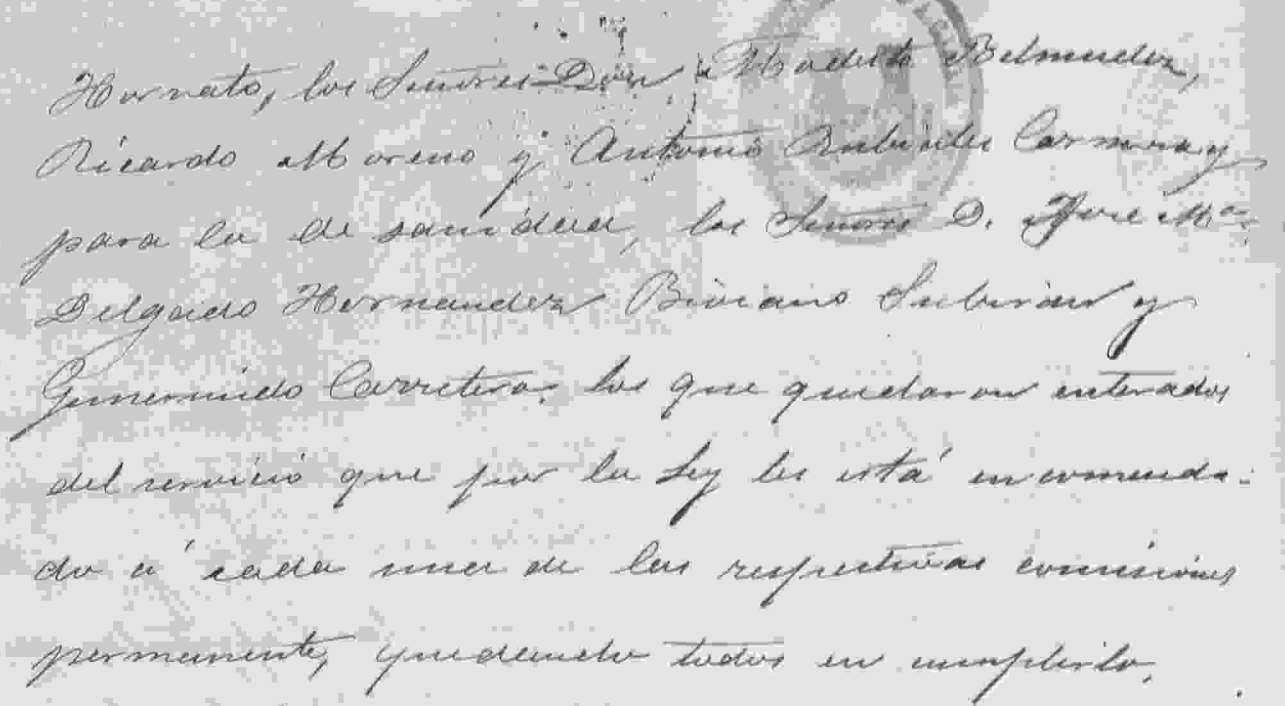 Hornato, los Señores Don Modesto Belmudez,
Ricardo Moreno y Antonio Rubiales Carmona y
para la de sanidad, los Señores D. Jose Mª
Delgado Hernandez Biviano Subiran y
Gumersindo Carretero, los que quedaron enterados
del servicio que por la Ley les está encomenda-
do á cada una de las respectivas comisiones
permanente, quedando todos en cumplirlo.